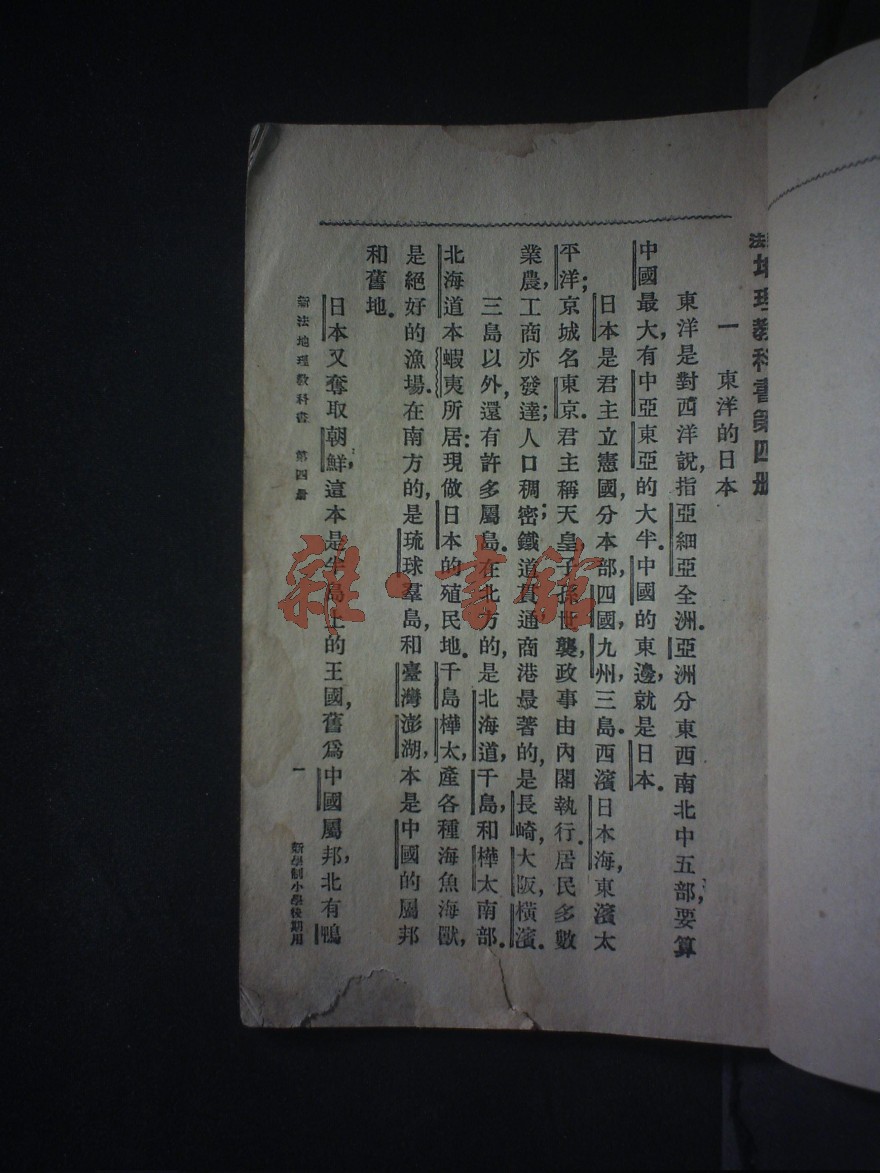 法地理教科書第四册
一　東洋的日本
東洋是對西洋說，指亞細亞全洲．亞洲分東西南北中五部，要算
中國最大，有中亞東亞的大半．中國的東邊，就是日本．
日本是君主立憲國，分本部，四國，九州，三島．西濱日本海，東濱太
平洋；京城名東京．君主稱天皇，子孫世襲，政事由內閣執行．居民多數
業農，工商亦發達；人口稠密；鐵道貫通，商港最著的，是長崎，大阪，橫濱．
三島以外，還有許多屬島．在北方的，是北海道，千島，和樺太南部．
北海道本蝦夷所居：現做日本的殖民地．千島樺太，產各種海魚海獸，
是絕好的漁場．在南方的，是琉球羣島，和臺灣澎湖，本是中國的屬邦
和舊地．
日本又奪取朝鮮，這本是半島上的王國，舊爲中國屬邦，北有鴨
新法地理教科書　第四册
一
新學制小學後期用
雜·書館